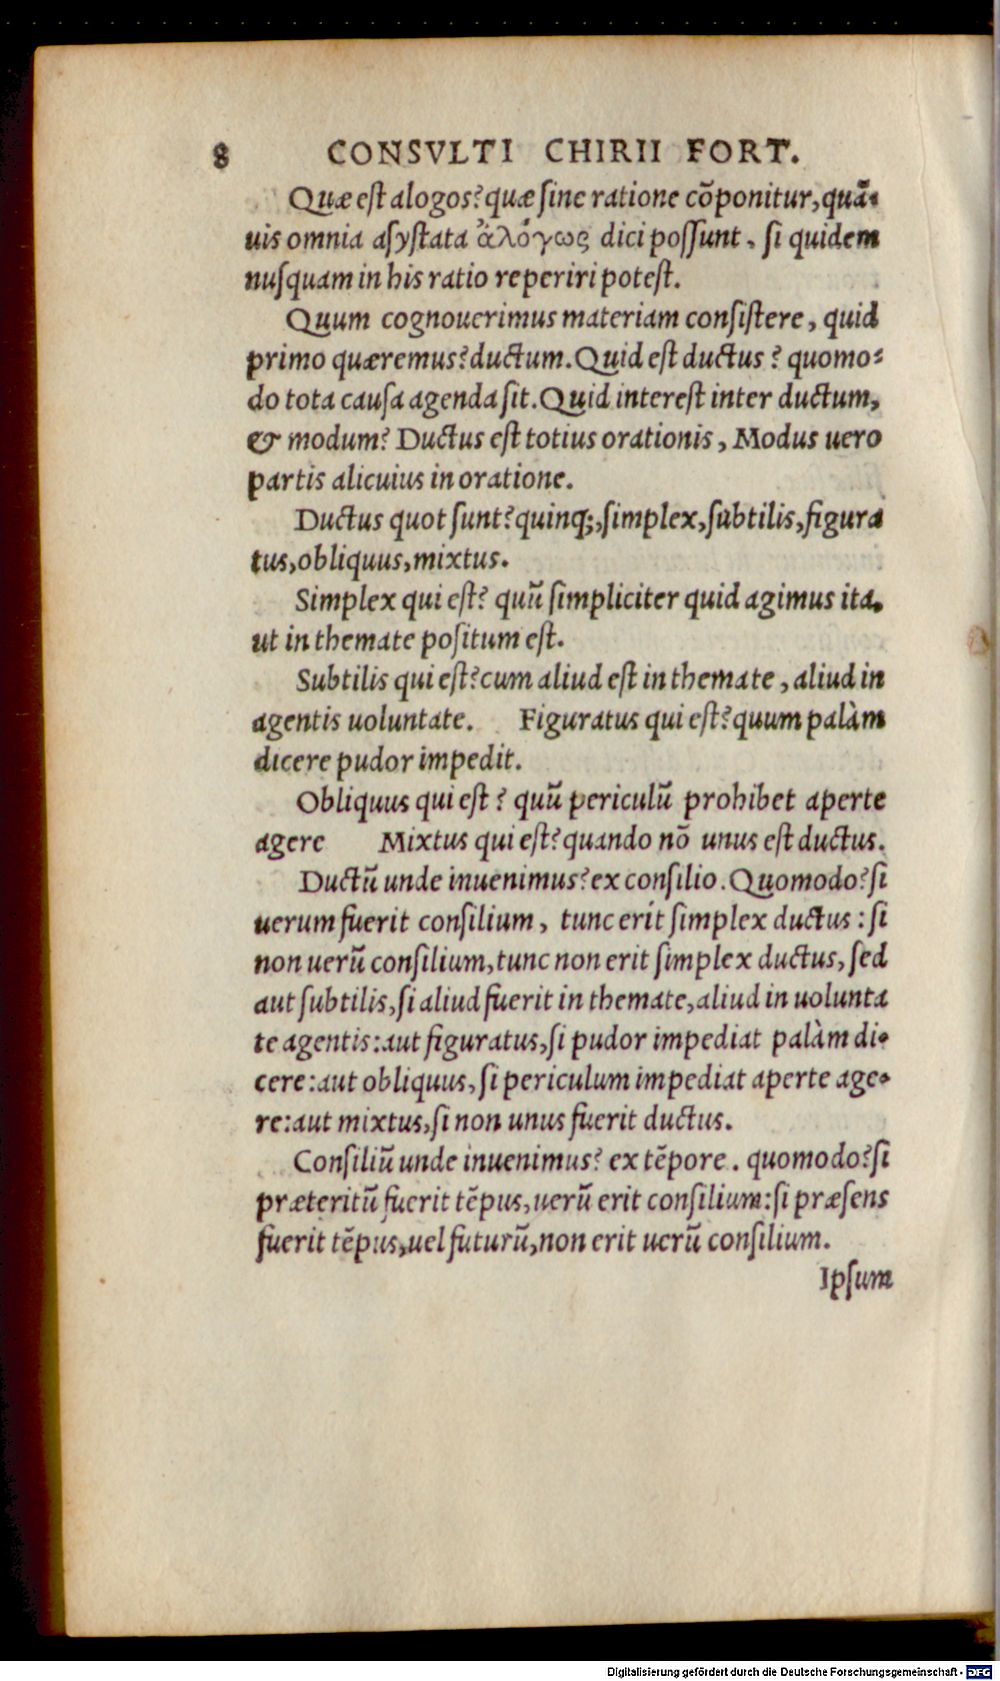 8 CONSVLTI CHIRII FORT.
Quæ est alogos? quæ sine ratione cõponitur, quã-
uis omnia asystata ἀλόγως dici possunt, si quidem
nusquam in his ratio reperiri potest.
Quum cognouerimus materiam consistere, quid
primo quæremus? ductum. Quid est ductus? quomo-
do tota causa agenda sit. Quid interest inter ductum,
& modum? Ductus est totius orationis, Modus uero
partis alicuius in oratione.
Ductus quot sunt? quinq;, simplex, subtilis, figura
tus, obliquus, mixtus.
Simplex qui est? quũ simpliciter quid agimus ita,
ut in themate positum est.
Subtilis qui est? cum aliud est in themate, aliud in
agentis uoluntate. Figuratus qui est? quum palàm
dicere pudor impedit.
Obliquus qui est? quũ periculũ prohibet aperte
agere Mixtus qui est? quando nõ unus est ductus.
Ductũ unde inuenimus? ex consilio. Quomodo? si
uerum fuerit consilium, tunc erit simplex ductus: si
non uerũ consilium, tunc non erit simplex ductus, sed
aut subtilis, si aliud fuerit in themate, aliud in uolunta
te agentis: aut figuratus, si pudor impediat palàm di-
cere: aut obliquus, si periculum impediat aperte age-
re: aut mixtus, si non unus fuerit ductus.
Consiliũ unde inuenimus? ex tẽpore. quomodo? si
præteritũ fuerit tẽpus, uerũ erit consilium: si præsens
fuerit tẽpus, uel futurũ, non erit uerũ consilium.
Ipsum
Digitalisierung gefördert durch die Deutsche Forschungsgemeinschaft - DFG